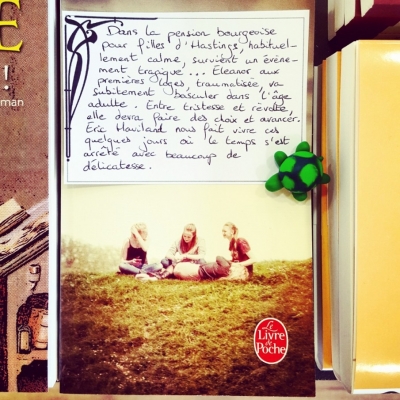 Dans la pension bourgeoise
pour filles d'Hastings, habituel-
lement calme, survient un évène-
ment tragique... Eleanor aux
premières loges, traumatisée va
subitement basculer dans l'âge
adulte. Entre tristesse et révolte,
elle devra faire des choix et avancer.
Eric Haviland nous fait vivre ces
quelques jours où le temps s'est
arrêté avec beaucoup de
délicatesse.
E
!
man
Le
Livre
de
Poche